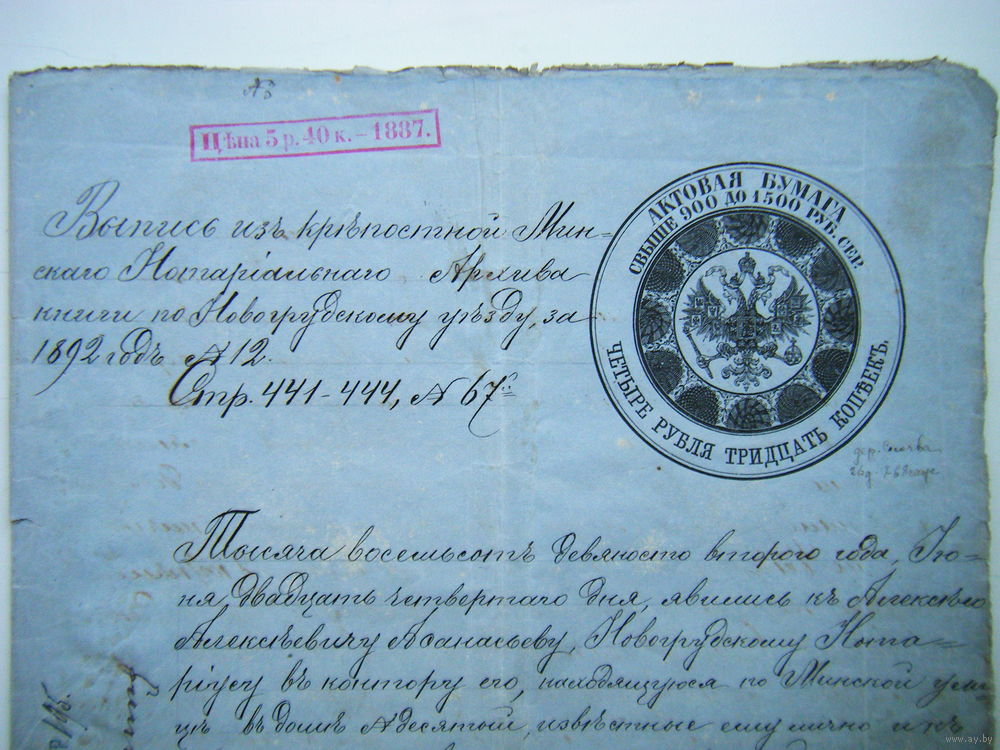 Цѣна 5 р. 40 к. – 1887.
АКТОВАЯ БУМАГА
СВЫШЕ 900 ДО 1500 РУБ. СЕР.
ЧЕТЫРЕ РУБЛЯ ТРИДЦАТЬ КОПѢЕКЪ.
Выпись изъ крѣпостной Мин-
скаго Нотаріальнаго Архива
книги по Новогрудскому уѣзду, за
1892 годъ № 12.
Стр. 441-444, № 67
дер.
26 д.
Тысяча восемьсотъ девяносто второго года, Iю-
ня двадцать четвертаго дня, явились къ Алексѣю
Алексѣевичу Аѳанасьеву, Новогрудскому Нота-
ріусу въ контору его, находящуюся по Минской ули-
цѣ въ домѣ № десятый, извѣстные ему лично и къ
www.ay.by